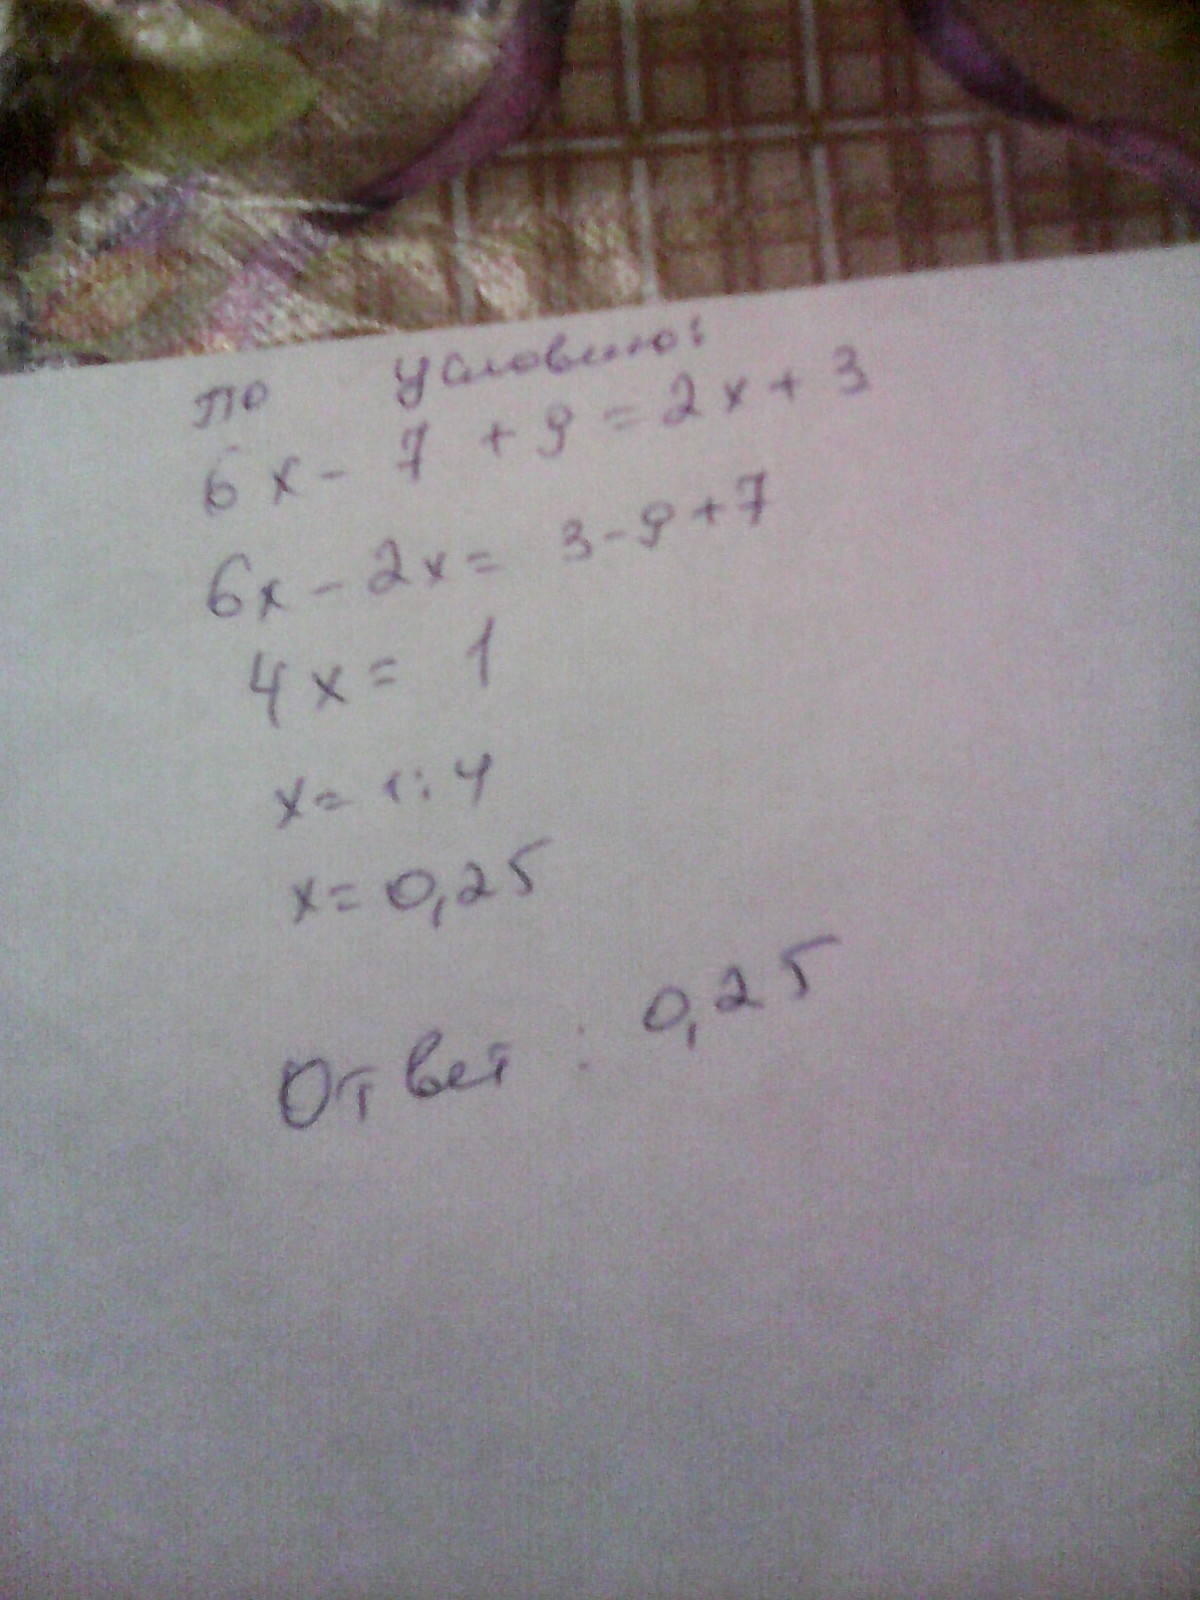 по условию:
6x - 7 + 9 = 2x + 3
6x - 2x = 3 - 9 + 7
4x = 1
x = 1 : 4
x = 0,25
Ответ : 0,25